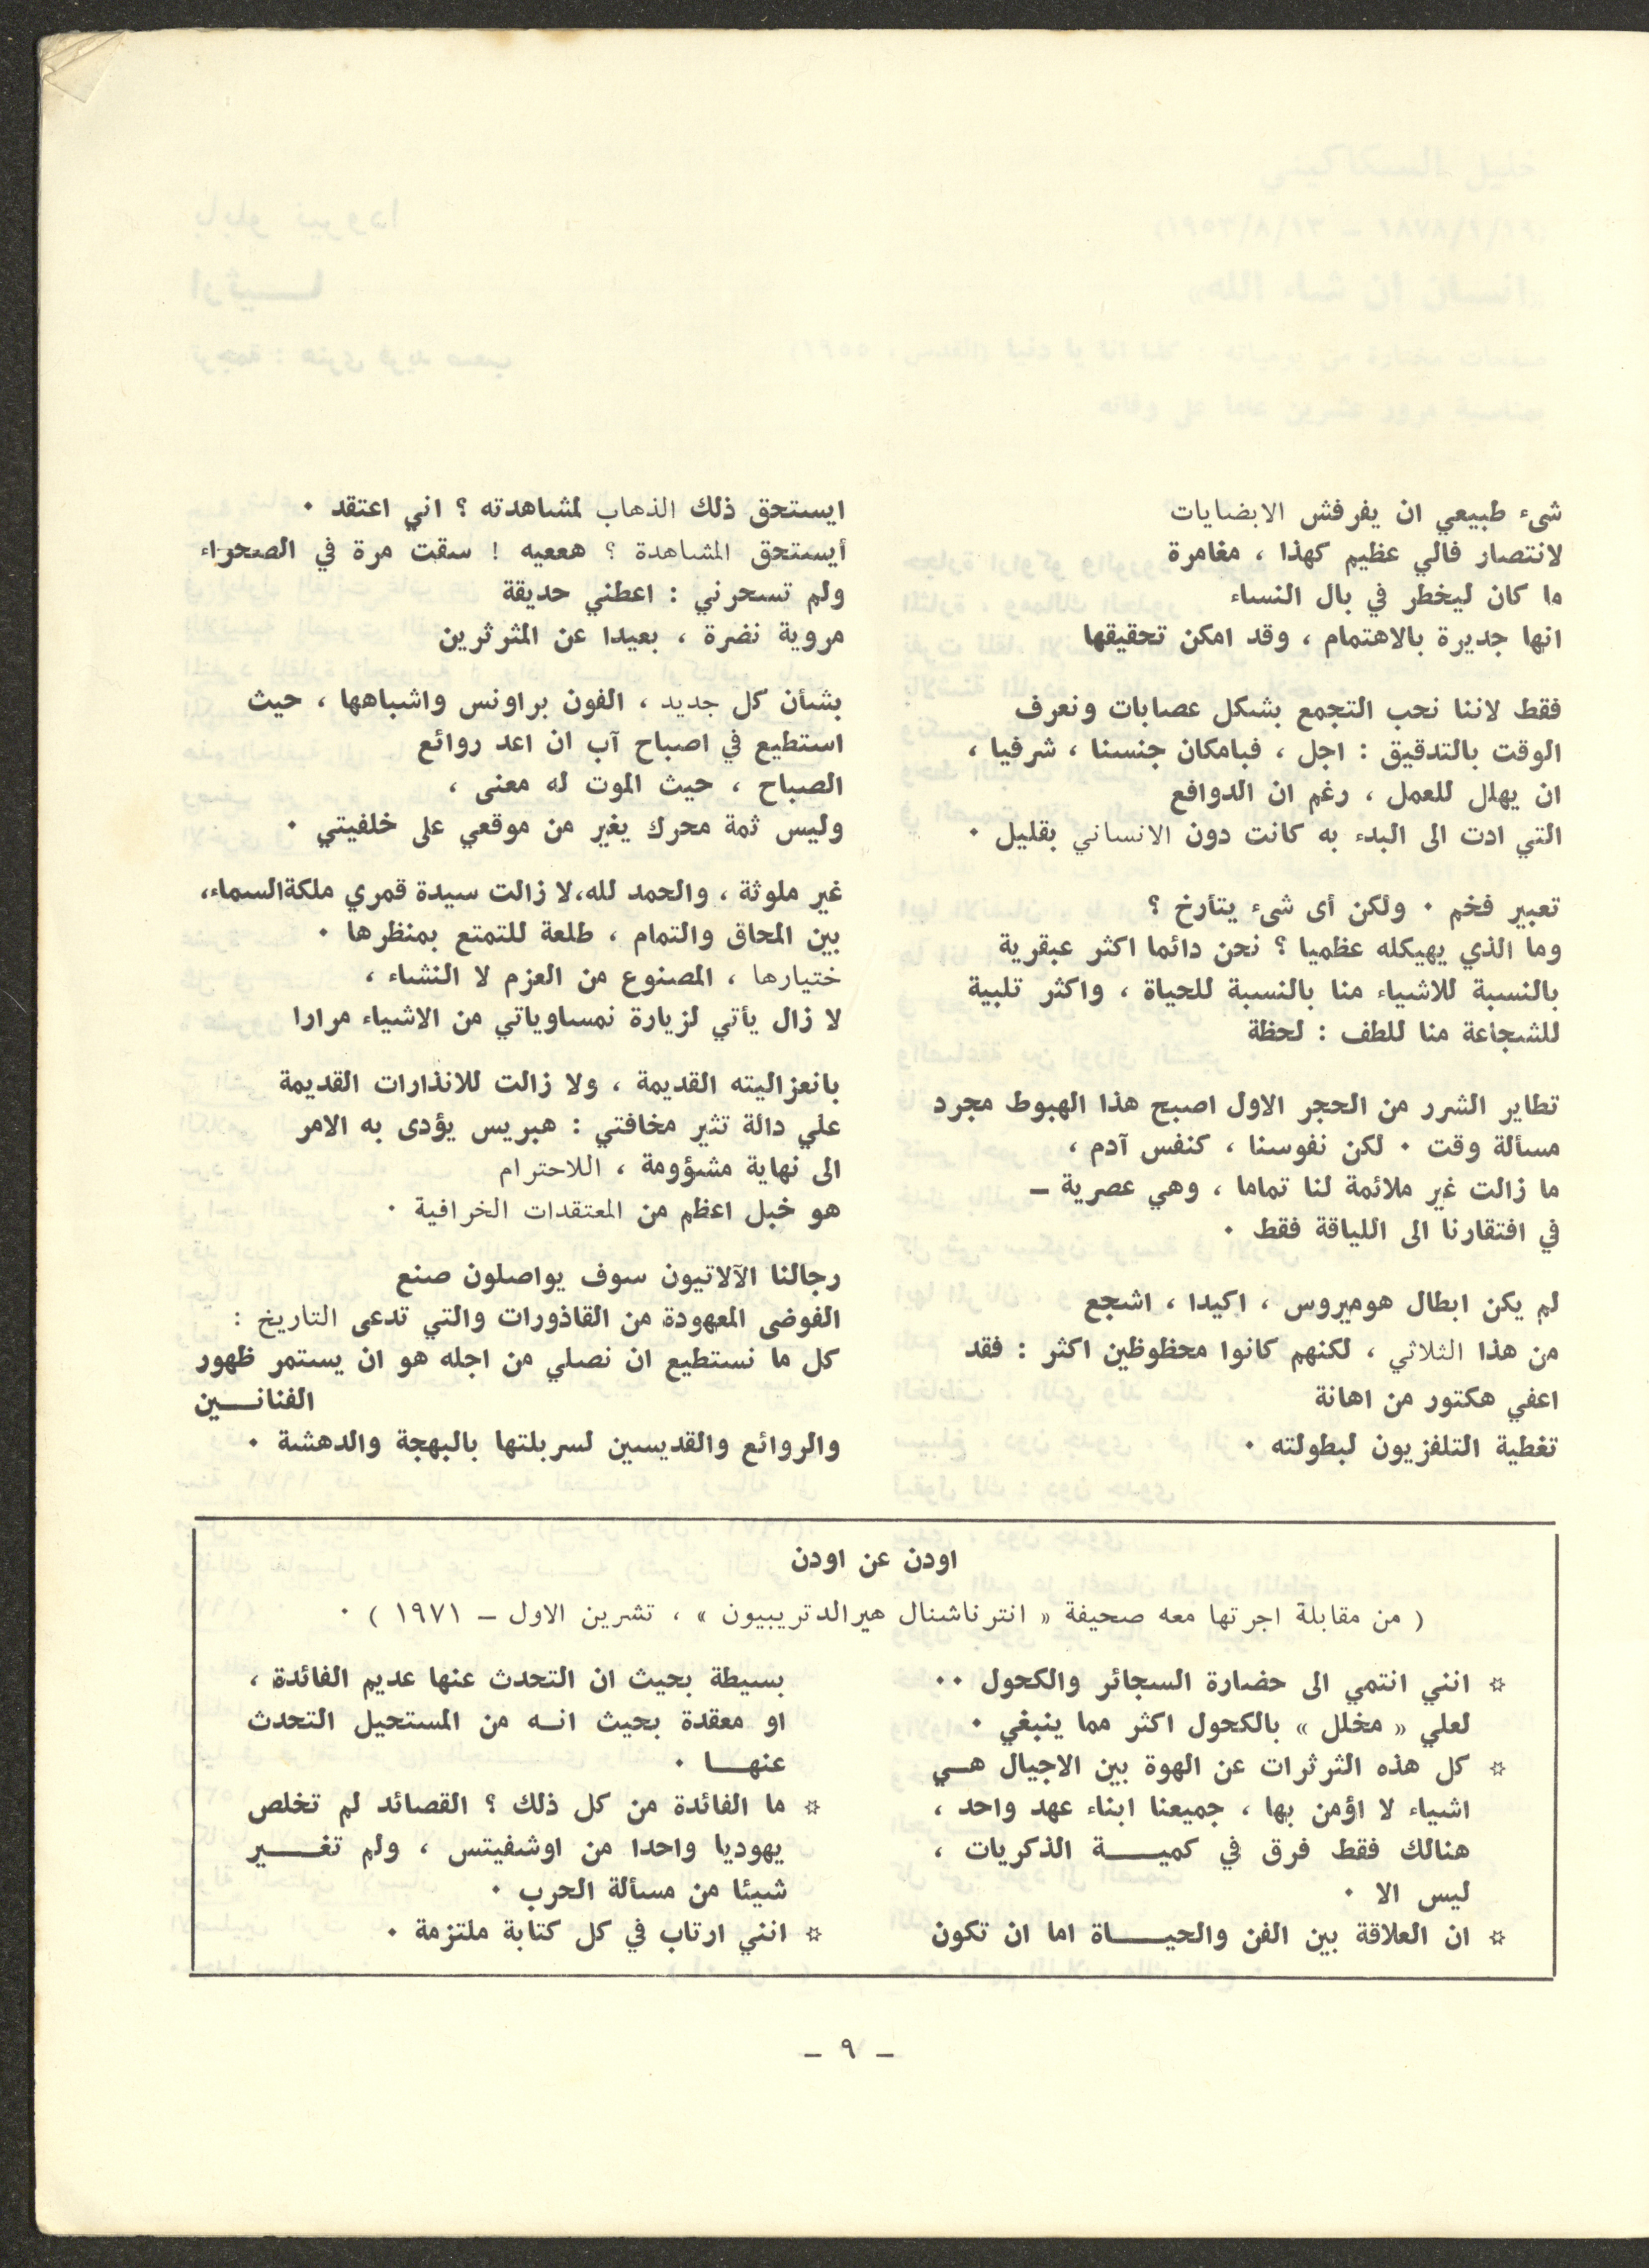 شىء طبيعي ان يفرفش الابضايات
لانتصار فالي عظيم كهذا ، مغامرة
ما كان ليخطر في بال النساء
انها جديرة بالاهتمام ، وقد امكن تحقيقها
فقط لاننا نحب التجمع بشكل عصابات ونعرف
الوقت بالتدقيق : اجل ، فبامكان جنسنا ، شرفيا ،
ان يهلل للعمل ، رغم ان الدوافع
التي ادت الى البدء به كانت دون الانساني بقليل ٠
تعبير فخم ٠ ولكن أى شىء يتأرخ ؟
وما الذي يهيكله عظميا ؟ نحن دائما اكثر عبقرية
بالنسبة للاشياء منا بالنسبة للحياة ، واكثر تلبية
للشجاعة منا للطف : لحظة
تطاير الشرر من الحجر الاول اصبح هذا الهبوط مجرد
مسألة وقت ٠ لكن نفوسنا ، كنفس آدم ،
ما زالت غير ملائمة لنا تماما ، وهي عصرية –
في افتقارنا الى اللياقة فقط ٠
لم يكن ابطال هوميروس ، اكيدا ، اشجع
من هذا الثلاثي ، لكنهم كانوا محظوظين اكثر : فقد
اعفي هكتور من اهانة
تغطية التلفزيون لبطولته ٠
ايستحق ذلك الذهاب لمشاهدته ؟ اني اعتقد ٠
أيستحق المشاهدة ؟ هععيه ! سقت مرة في الصحراء
ولم تسحرني : اعطني حديقة
مروية نضرة ، بعيدا عن المثرثرين
بشأن كل جديد ، الفون براونس واشباهها ، حيث
استطيع في اصباح آب ان اعد روائع
الصباح ، حيث الموت له معنى ،
وليس ثمة محرك يغير من موقعي على خلفيتي ٠
غير ملوثة ، والحمد لله،لا زالت سيدة قمري ملكةالسماء،
بين المحاق والتمام ، طلعة للتمتع بمنظرها ٠
ختيارها ، المصنوع من العزم لا النشاء ،
لا زال يأتي لزيارة نمساوياتي من الاشياء مرارا
بانعزاليته القديمة ، ولا زالت للانذارات القديمة
علي دالة تثير مخافتي : هبريس يؤدى به الامر
الى نهاية مشؤومة ، اللاحترام
هو خبل اعظم من المعتقدات الخرافية ٠
رجالنا الآلاتيون سوف يواصلون صنع
الفوضى المعهودة من القاذورات والتي تدعى التاريخ :
كل ما نستطيع ان نصلي من اجله هو ان يستمر ظهور
الفنانـــين
والروائع والقديسين لسربلتها بالبهجة والدهشة ٠
اودن عن اودن
( من مقابلة اجرتها معه صحيفة « انترناشنال هيرالدتريبيون » ، تشرين الاول – ١٩٧١ ) ٠
☆ انني انتمي الى حضارة السجائر والكحول ٠٠
لعلي « مخلل » بالكحول اكثر مما ينبغي ٠
☆ كل هذه الثرثرات عن الهوة بين الاجيال هـي
اشياء لا اؤمن بها ، جميعنا ابناء عهد واحد ،
هنالك فقط فرق في كميـــــة الذكريات ،
ليس الا ٠
☆ ان العلاقة بين الفن والحيـــــاة اما ان تكون
بسيطة بحيث ان التحدث عنها عديم الفائدة ،
او معقدة بحيث انـه من المستحيل التحدث
عنهـــا ٠
☆ ما الفائدة من كل ذلك ؟ القصائد لم تخلص
يهوديا واحدا من اوشفيتس ، ولم تغـــــير
شيئا من مسألة الحرب ٠
☆ انني ارتاب في كل كتابة ملتزمة ٠
– ٩ –